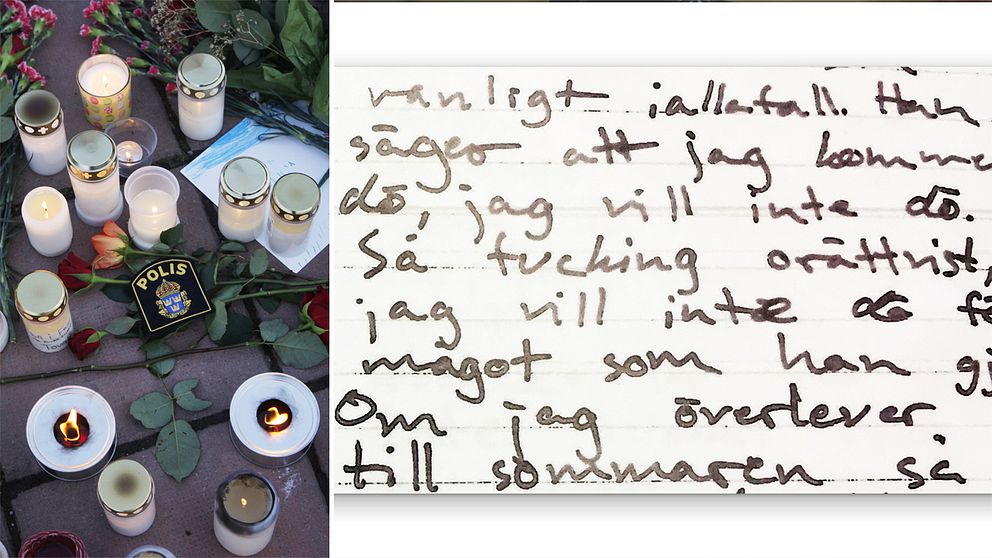 POLIS
Tova
vanligt iallafall. Han
säger att jag komme
dö, jag vill inte dö.
Så fucking orättvist,
jag vill inte dö fö
något som han gj
Om jag överlever
till sommaren så